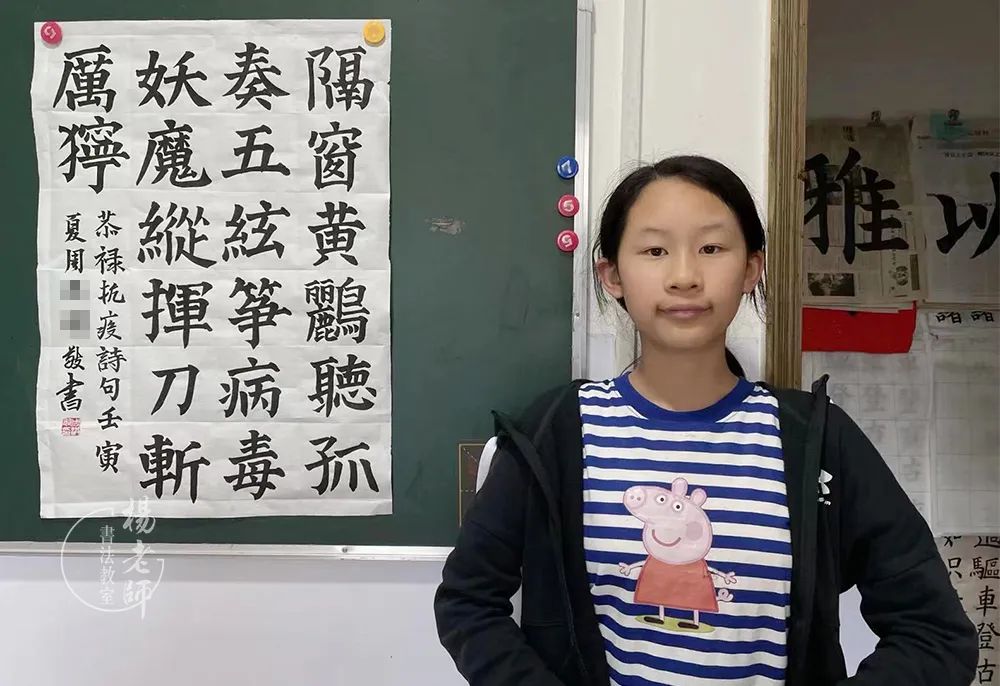 隔窗黄鸝聽孤
奏五絃箏病毒
妖魔縱揮刀斬
厲獰
恭禄抗疫詩句壬寅
夏周
敬書
楊老師
書法教室
以
雅
驅車登古